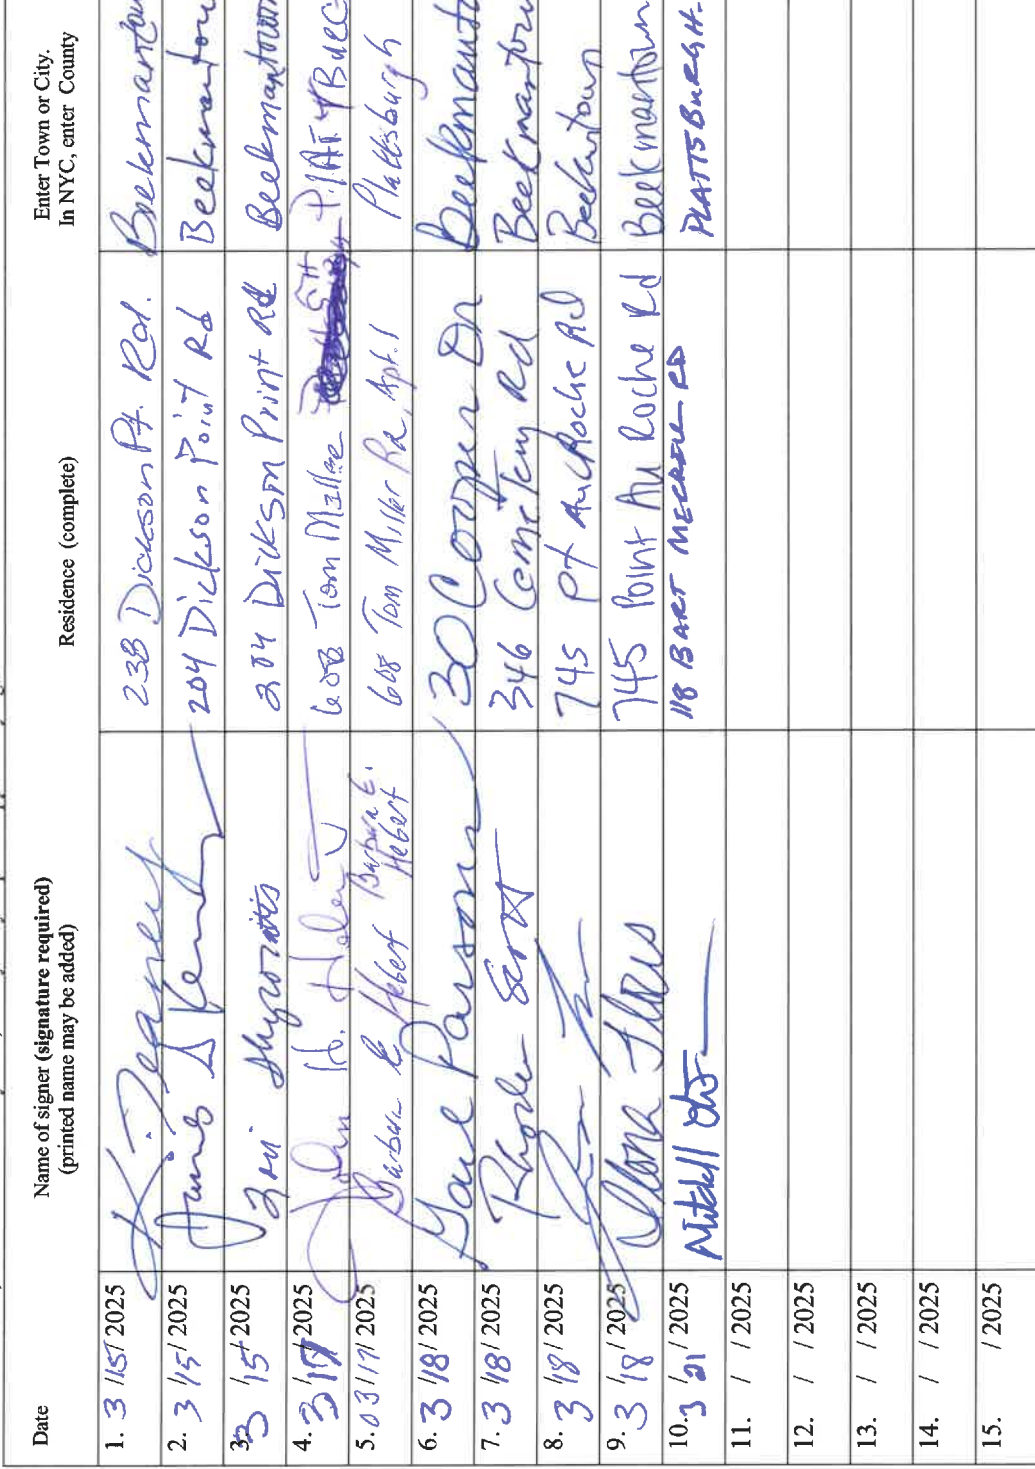 Date Name of signer (signature required) Residence (complete) Enter Town or City.
(printed name may be added) In NYC, enter County
1. 3 /15/ 2025 K. 238 Dickson Pt. Rd. Beekmantow
2. 3 /15/ 2025 204 Dickson Point Rd Beekmantown
3. 3 /15/ 2025 204 Dickson Point Rd Beekmantown
4. 3/17/ 2025 John H. 608 Tom Miller
5. 03/17/2025 Barbara E Hebert Barbara E. Hebert 608 Tom Miller Rd, Apt. 1 Plattsburgh
6. 3 /18/ 2025 Gail Parsons 30 Cooper Dr Beekmanto
7. 3 /18/ 2025 Scott 346 Cemetery Rd Beekmantow
8. 3 /18/ 2025 745 Pt AuRoche Rd
9. 3 /18/ 2025 745 Point Au Roche Rd Beekmantown
10. 3 /21/ 2025 Mitchell 118 BART RD PLATTSBURGH
11. / / 2025
12. / / 2025
13. / / 2025
14. / / 2025
15. / 2025